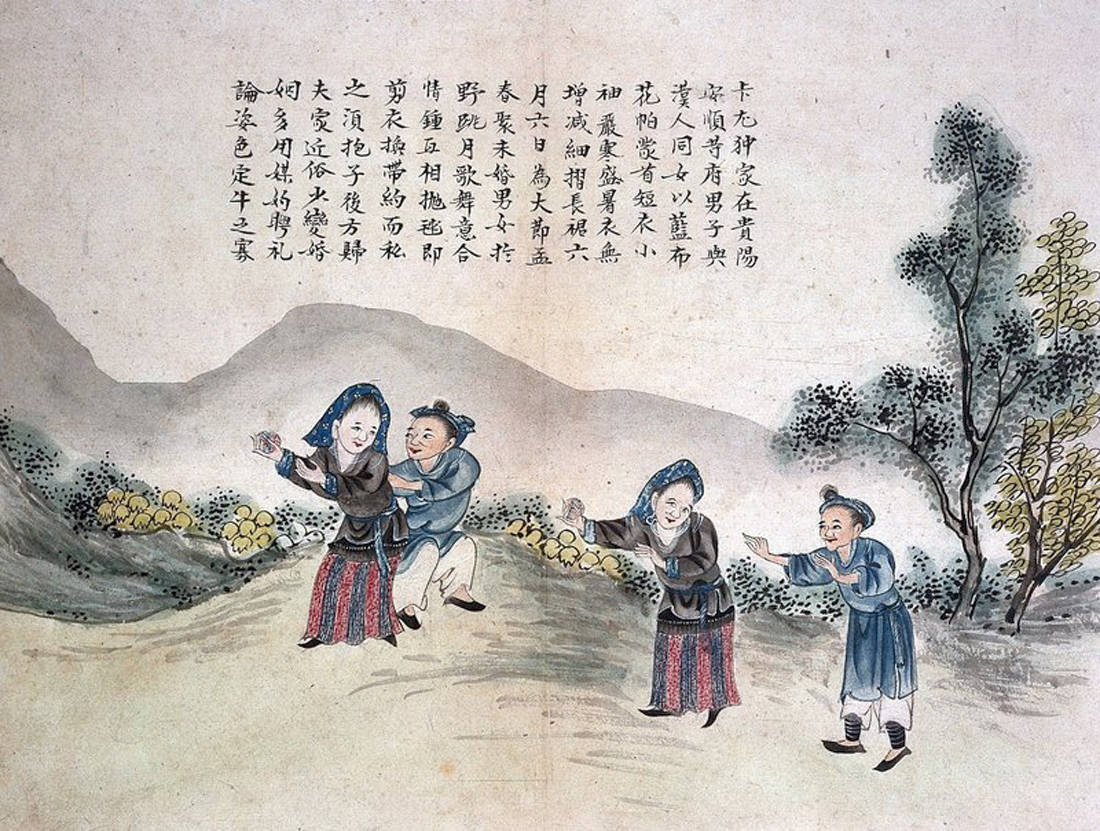 卡尤狆家在貴陽
安順等府男子與
漢人同女以藍布
花帕蒙首短衣小
袖嚴寒盛暑衣無
增减細摺長裙六
月六日為大節孟
春聚未婚男女扵
野跳月歌舞意合
情鍾互相拋毬即
剪衣換帶約而私
之湏抱子後方歸
夫家近俗少變婚
姻多用媒妁聘礼
論姿色定牛之寡